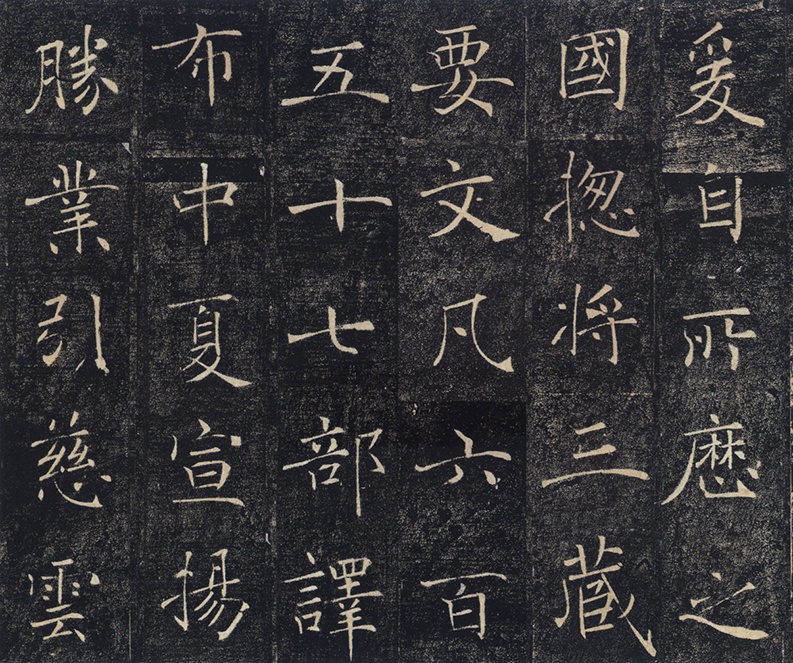 爰自所歷之
國揔將三藏
要文凡六百
五十七部譯
布中夏宣揚
勝業引慈雲